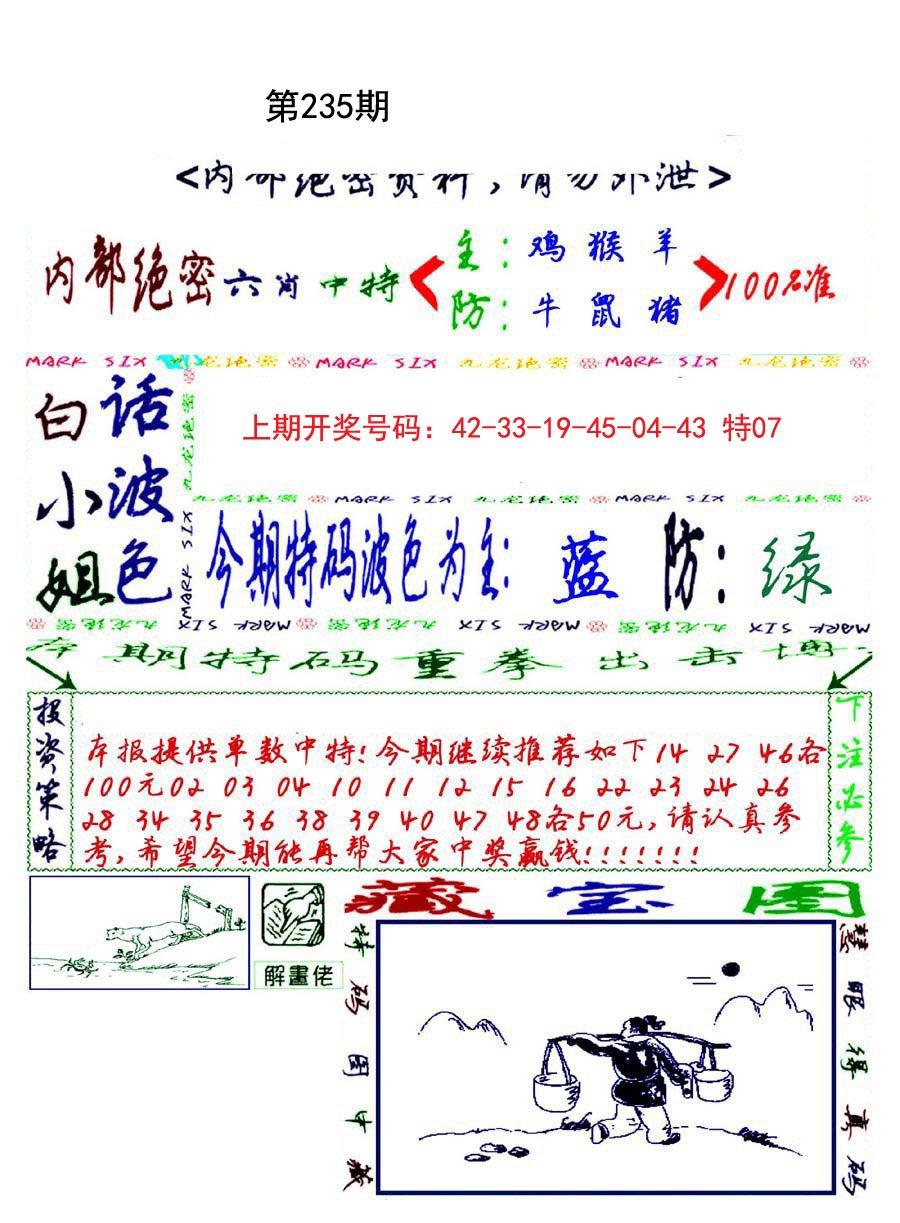 第235期
<内部绝密资料,请勿外泄>
内部绝密六肖中特
主:鸡猴羊
防:牛鼠猪
100%准
MARK SIX 九龙绝密 MARK SIX 九龙绝密 MARK SIX 九龙绝密
白小姐
话波色
九龙绝密
MARK SIX
上期开奖号码：42-33-19-45-04-43 特07
九龙绝密 MARK SIX 九龙绝密 MARK SIX 九龙绝密
今期特码波色为主:蓝 防:绿
九龙绝密 MARK SIX 九龙绝密 MARK SIX 九龙绝密 MARK SIX
本期特码重拳出击博
投资策略
本报提供单数中特!今期继续推荐如下14 27 46各
100元02 03 04 10 11 12 15 16 22 23 24 26
28 34 35 36 38 39 40 47 48各50元,请认真参
考,希望今期能再帮大家中奖赢钱!!!!!!!
下注必参
解畫佬
藏宝图
特码图中藏
慧眼得真码